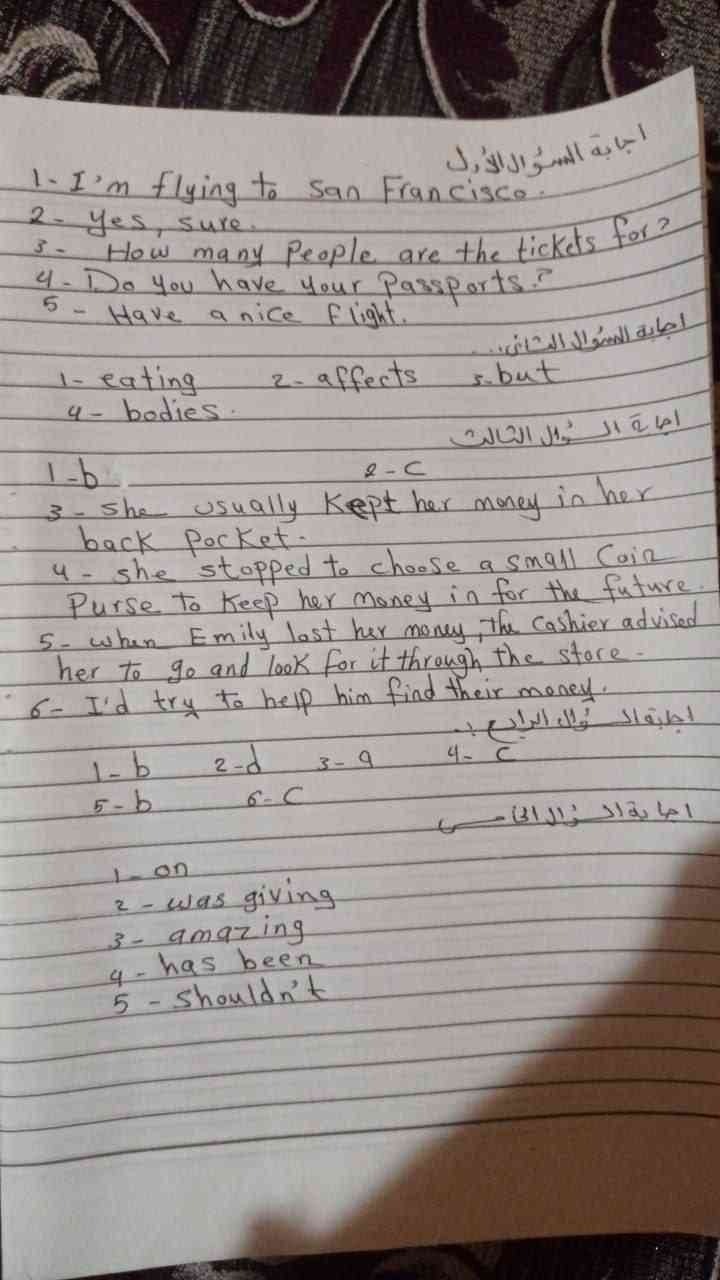 اجابة السؤال الأول
1- I'm flying to San Francisco.
2- yes, sure.
3- How many People are the tickets for?
4- Do you have your Passports.?
5- Have a nice flight.
اجابة السؤال الثاني...
1- eating 2- affects 3- but
4- bodies.
اجابة السؤال الثالث
1-b 2-c
3- she usually kept her money in her
back Pocket.
4- she stopped to choose a small Coin
Purse to keep her money in for the future.
5- when Emily lost her money, the Cashier advised
her to go and look for it through the store.
6- I'd try to help him find their money.
اجابة السؤال الرابع :.
1-b 2-d 3-a 4- c
5-b 6-c
اجابة السؤال الخامس
1- on
2- was giving
3- amazing
4- has been
5- shouldn't